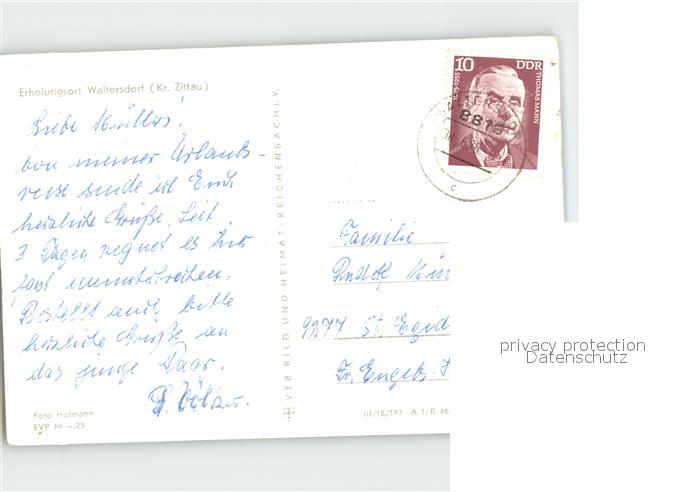 Erholungsort Waltersdorf (Kr. Zittau)
Liebe Müllers!
Von meiner Urlaubs-
reise sende ich Euch
herzliche Grüße. Seit
3 Tagen regnet es hier
fast ununterbrochen.
Bestellt auch bitte
herzliche Grüße an
das junge Paar.
Foto Hofmann
EVP M -.25
VEB BILD UND HEIMAT · REICHENBACH I. V.
10 DDR
1875-1955
THOMAS MANN
8815
c
Familie
Rudolf
9277 St. Egid
Fr. Engels
III/18/197 A 1/B 46
privacy protection
Datenschutz